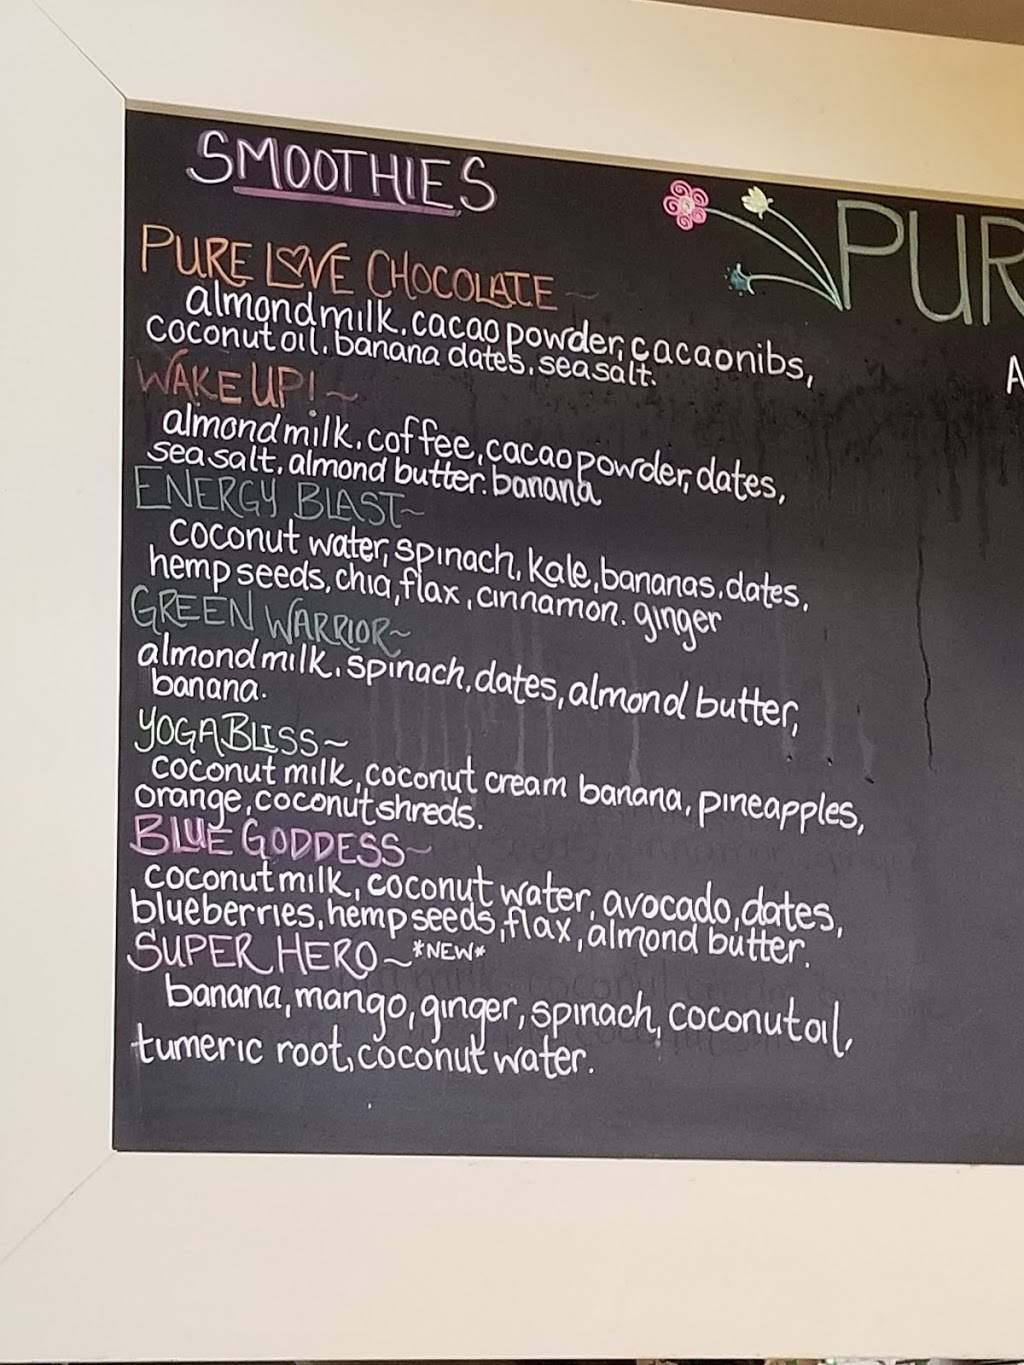 SMOOTHIES
PURE LOVE CHOCOLATE ~
almond milk. cacao powder, cacao nibs,
coconut oil. banana dates. sea salt.
WAKE UP! ~
almond milk. coffee, cacao powder, dates,
sea salt. almond butter. banana
ENERGY BLAST ~
coconut water, spinach, kale, bananas. dates.
hemp seeds, chia, flax, cinnamon. ginger
GREEN WARRIOR ~
almond milk. spinach, dates, almond butter,
banana.
YOGA BLISS ~
coconut milk, coconut cream banana, pineapples,
orange, coconut shreds.
BLUE GODDESS ~
coconut milk, coconut water, avocado, dates,
blueberries, hemp seeds, flax, almond butter.
SUPER HERO ~ *NEW*
banana, mango, ginger, spinach, coconut oil,
tumeric root, coconut water.
PUR
A